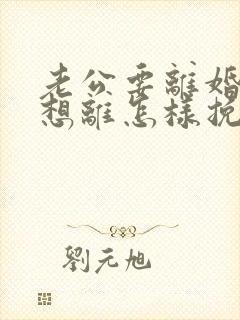 老公要離婚
想離怎樣挽
劉元旭